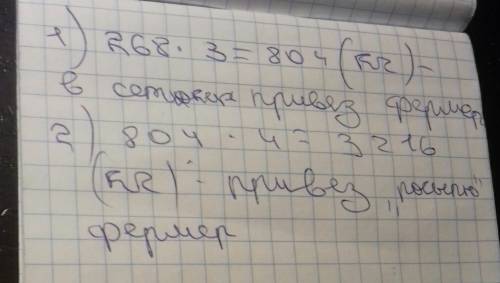 1) 268 · 3 = 804 (кг) –
в сетках привез фермер
2) 804 · 4 = 3216
(кг) – привез „россыпью"
фермер